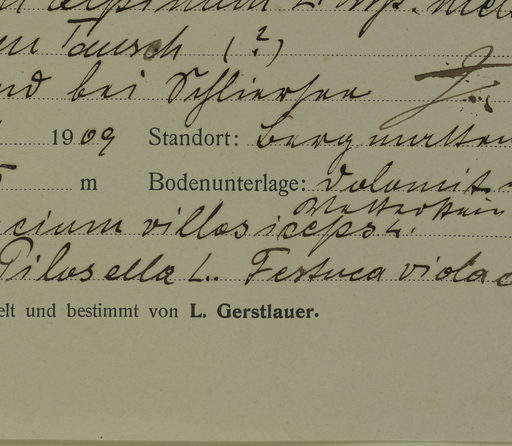 alpinum L. ssp.
Tausch (?)
bei Schliersee
1909 Standort: Bergmatten
m Bodenunterlage: Dolomit
Wetterstein
cium villosiceps L.
Pilosella L. Festuca violac
elt und bestimmt von L. Gerstlauer.